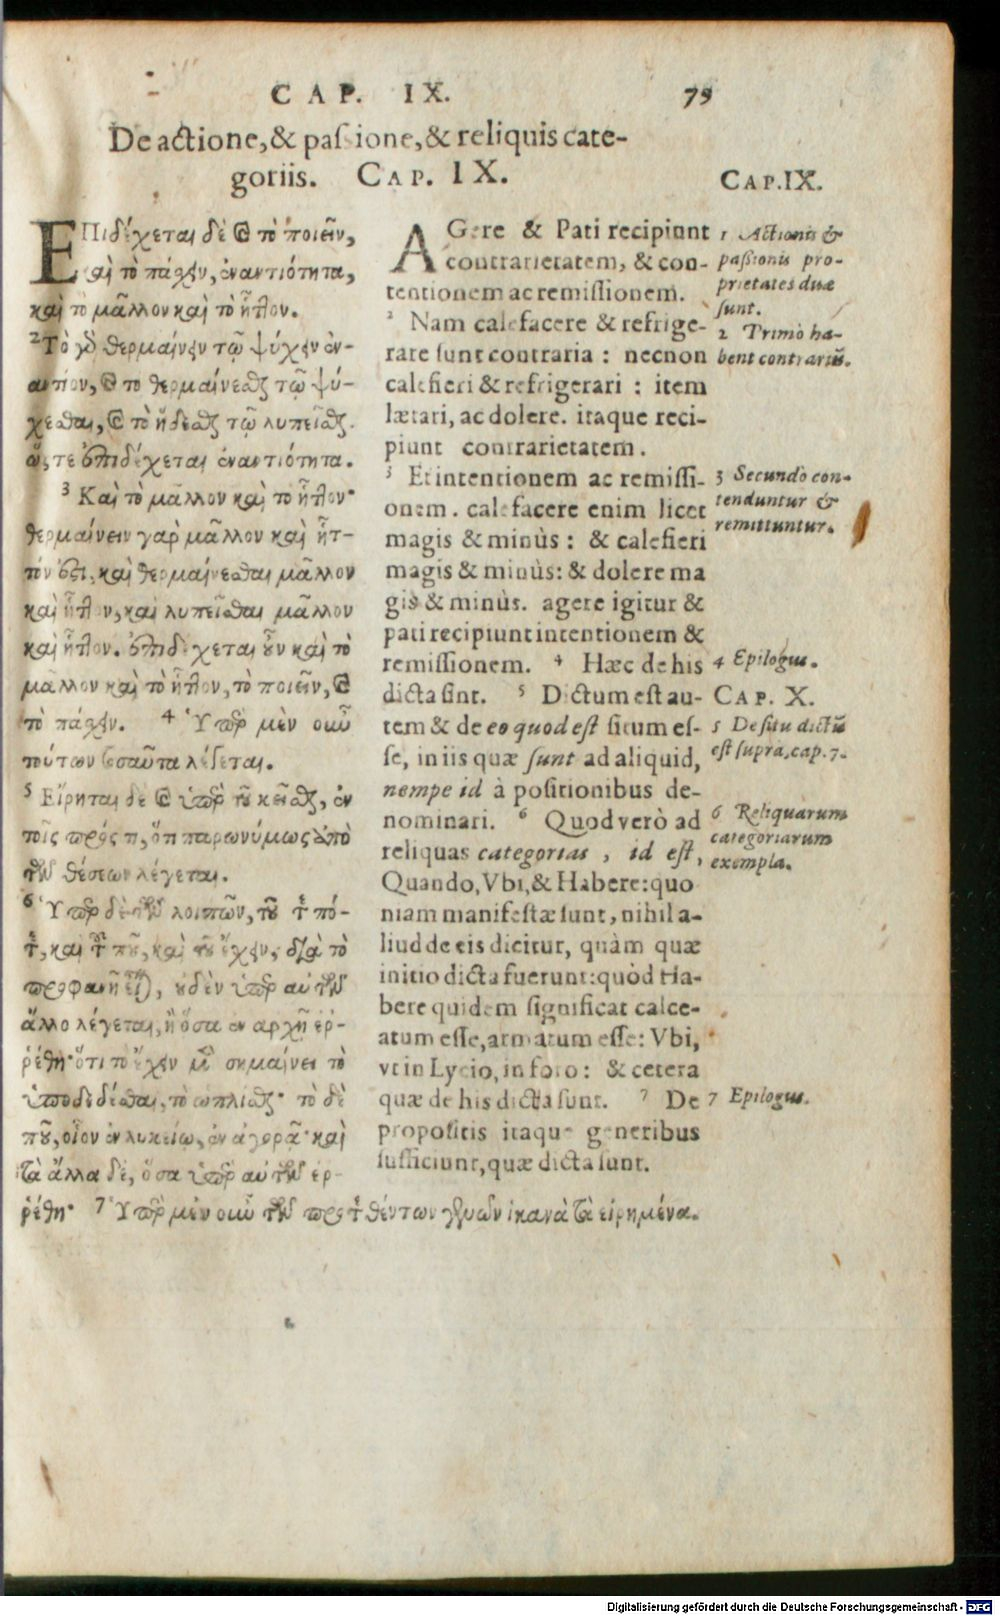 CAP. IX.
79
De actione, & passione, & reliquis cate-
goriis. CAP. IX.
ΕΠιδέχεται δὲ καὶ τὸ ποιεῖν,
καὶ τὸ πάχειν, ἐναντιότητα,
καὶ τὸ μᾶλλον καὶ τὸ ἧττον.
2 Τὸ γὸ θερμαίνειν τῷ ψύχειν ἐν-
αντίον, καὶ τὸ θερμαίνεσθαι τῷ ψύ-
χεσθαι, καὶ τὸ ἥδεσθαι τῷ λυπεῖσθαι.
ὥστε ἐπιδέχεται ἐναντιότητα.
3 Καὶ τὸ μᾶλλον καὶ τὸ ἧττον·
θερμαίνειν γὰρ μᾶλλον καὶ ἧτ-
τόν ἐστι, καὶ θερμαίνεσθαι μᾶλλον
καὶ ἧττον, καὶ λυπεῖσθαι μᾶλλον
καὶ ἧττον. ἐπιδέχεται οὖν καὶ τὸ
μᾶλλον καὶ τὸ ἧττον, τὸ ποιεῖν, καὶ
τὸ πάχειν. 4 Ὑπὲρ μὲν οὖν
τούτων τοσαῦτα λέγεται.
5 Εἴρηται δὲ καὶ ὑπὲρ τοῦ κεῖσθαι, ἐν
τοῖς πρός τι, ὅτι παρωνύμως ἀπὸ
τῶν θέσεων λέγεται.
6 Ὑπὲρ δὲ τῶν λοιπῶν, τοῦ τε πό-
τε, καὶ τοῦ ποῦ, καὶ τοῦ ἔχειν, διὰ τὸ
προφανῆ εἶναι, οὐδὲν ὑπὲρ αὐτῶν
ἄλλο λέγεται, ἢ ὅσα ἐν ἀρχῇ ἐρ-
ρέθη· ὅτι τὸ ἔχειν μὲν σημαίνει τὸ
ὑποδεδέσθαι, τὸ ὡπλίσθαι· τὸ δὲ
ποῦ, οἷον ἐν λυκείῳ, ἐν ἀγορᾷ· καὶ
τὰ ἄλλα δὲ, ὅσα ὑπὲρ αὐτῶν ἐρ-
ρέθη· 7 Ὑπὲρ μὲν οὖν τῶν προτεθέντων γενῶν ἱκανὰ τὰ εἰρημένα.
AGere & Pati recipiunt
contrarietatem, & con-
tentionem ac remissionem.
2 Nam calefacere & refrige-
rare sunt contraria : necnon
calefieri & refrigerari : item
lætari, ac dolere. itaque reci-
piunt contrarietatem.
3 Et intentionem ac remissi-
onem. calefacere enim licet
magis & minùs : & calefieri
magis & minùs: & dolere ma
gis & minùs. agere igitur &
pati recipiunt intentionem &
remissionem. 4 Hæc de his
dicta sint. 5 Dictum est au-
tem & de eo quod est situm es-
se, in iis quæ sunt ad aliquid,
nempe id à positionibus de-
nominari. 6 Quod verò ad
reliquas categorias, id est,
Quando, Vbi, & Habere: quo
niam manifestæ sunt, nihil a-
liud de eis dicitur, quàm quæ
initio dicta fuerunt: quòd Ha-
bere quidem significat calce-
atum esse, armatum esse: Vbi,
vt in Lycio, in foro: & cetera
quæ de his dicta sunt. 7 De
propositis itaque generibus
sufficiunt, quæ dicta sunt.
CAP. IX.
1 Actionis &
passionis pro-
prietates duæ
sunt.
2 Primò ha-
bent contrariũ.
3 Secundò con-
tenduntur &
remittuntur.
4 Epilogus.
CAP. X.
5 De situ dictũ
est suprà, cap. 7.
6 Reliquarum
categoriarum
exempla.
7 Epilogus.
Digitalisierung gefördert durch die Deutsche Forschungsgemeinschaft - DFG